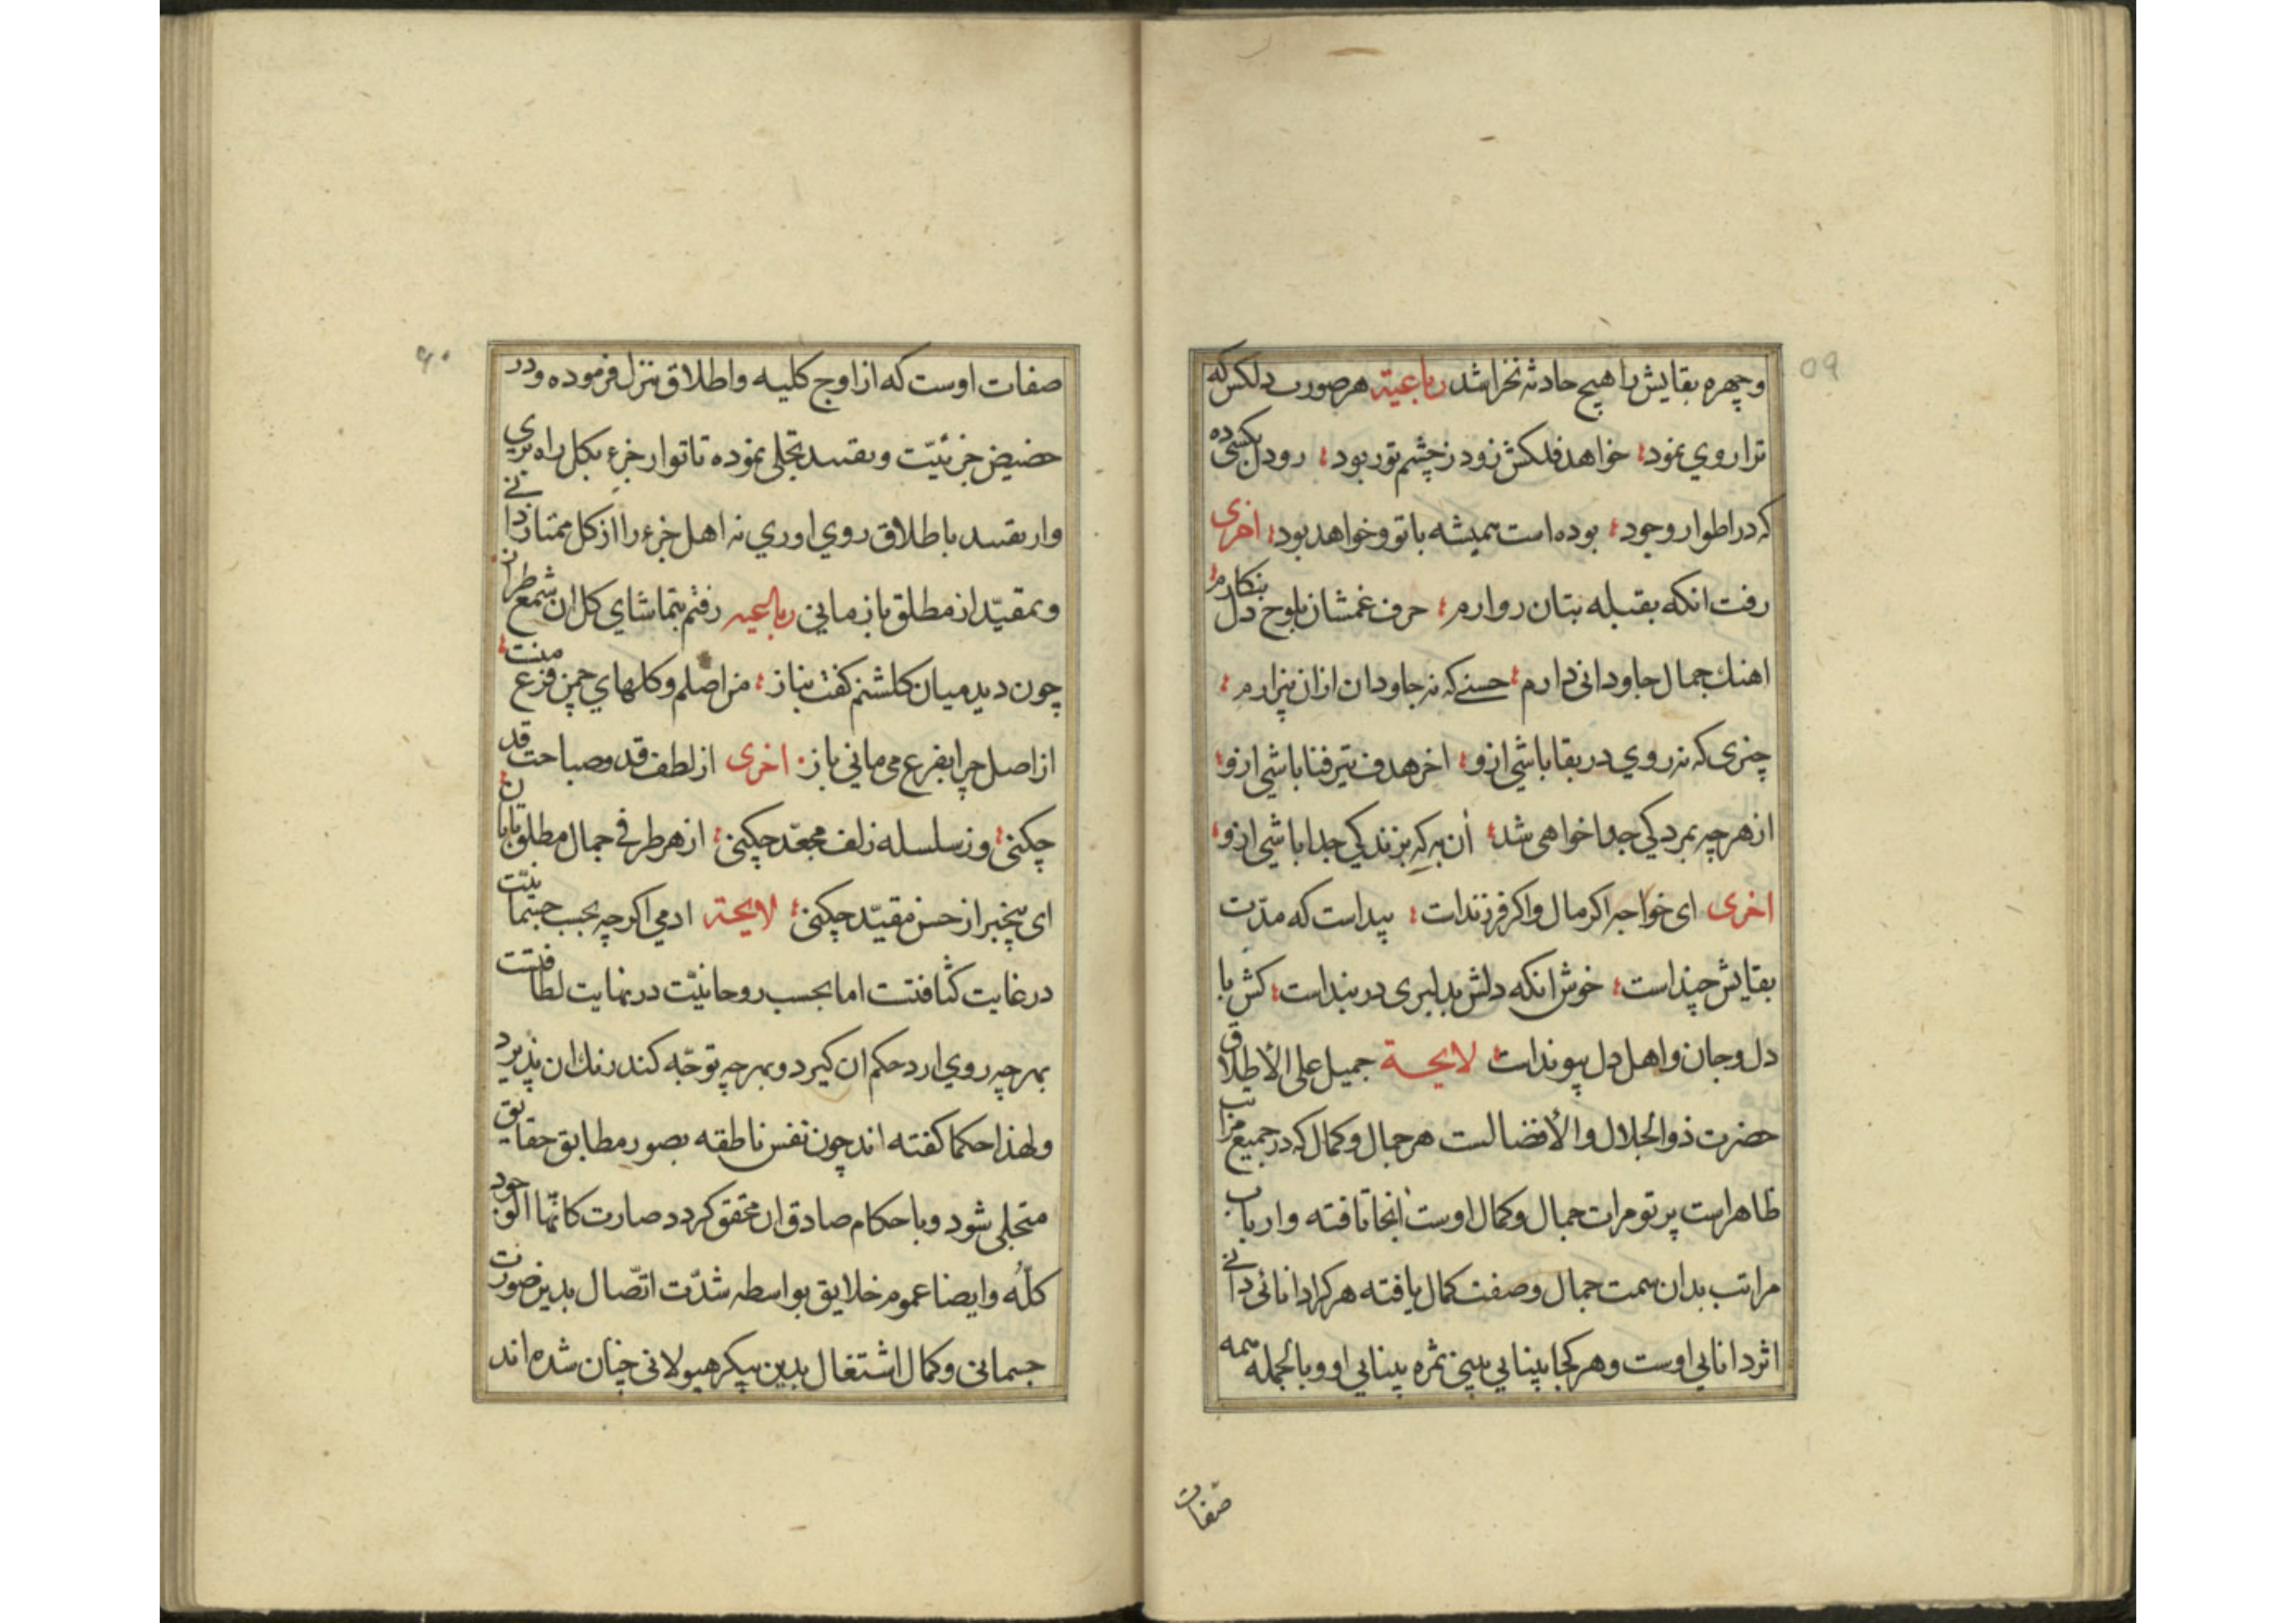 وچهره بقایش را هیچ حادثه نخراشد رباعیة هر صورت دلکش که
ترا روي نمود خواهد فلکش زود ز چشم تو ربود رو دل بکسی ده
که در اطوار وجود بوده است همیشه با تو وخواهد بود اخری
رفت انکه بقبله بتان روارم حرف غمشان بلوح دل بنکارم
اهنك جمال جاودانی دارم حسنے که نه جاودان ازان بیزارم
چیزی که نه روي در بقا باشي ازو اخر هدف تیر فنا باشي ازو
از هر چه بمردکي جدا خواهی شد ان به که بزندکي جدا باشي ازو
اخری ای خواجه اکر مال واکر فرزندات پیداست که مدت
بقایش چنداست خوش انکه دلش بدلبری در بنداست کش با
دل وجان واهل دل پیونداست لایحــة جمیل علی الأطلاق
حضرت ذوالجلال والأفضالست هر جمال وکمال که در جمیع مراتب
ظاهر است پرتو مرات جمال وکمال اوست انجا تافته وارباب
مراتب بدان سمت جمال وصفت کمال یافته هر کرا دانائی دانے
اثر دانایي اوست وهر کجا بینایي بینی ثمره بینایي او وبالجمله همه
صفات
۵۹
صفات اوست که از اوج کلیه واطلاق تنزل فرموده ودر
حضیض جزئیّت وتقید تجلی نموده تا تو از جزء بکل راه بري
واز تقید باطلاق روي اوري نه اهل جزء را از کل ممتاز دانے
وبمقیّد از مطلق باز مایي رباعیه رفتم بتماشاي کل ان شمع طراز
چون دید میان کلشنم کفت بناز من اصلم وکلهاي چمن فرع منست
از اصل چرا بفرع می مانی باز اخری از لطف قد وصباحت قد
چکنی وز سلسله زلف مجعّد چکنی از هر طرفے جمال مطلق تابان
ای بیخبر از حسن مقیّد چکنی لایحة ادمي اکرچه بحسب جسمانیّت
در غایت کثافتست اما بحسب روحانیّت در نهایت لطافتست
بهرچه روي ارد حکم ان کیرد وبهرچه توجّه کند رنك ان پذیرد
ولهذا حکما کفته اند چون نفس ناطقه بصور مطابق حقایق
متجلی شود وباحکام صادق ان محقق کردد صارت کانّها الوجود
کلّه وایضا عموم خلایق بواسطه شدّت اتّصال بدین صورت
جسمانی وکمال اشتغال بدین پیکر هیولانی چنان شده اند
۶۰